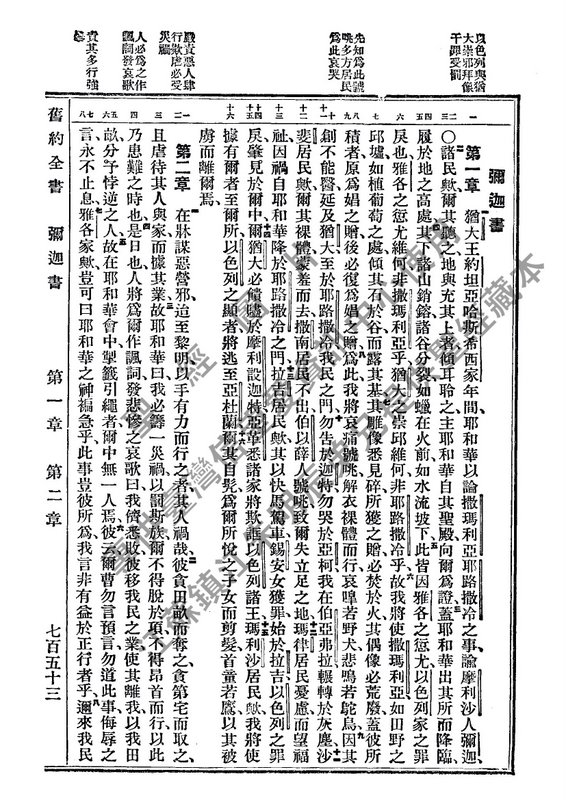 以色列與猶
大崇邪拜像
干罪受罰
先知為此號
咷多方居民
為此哀哭
嚴責惡人肆
行欺虐必受
災禍
人必為之作
諷詞發哀歌
責其多行強
彌迦書
第一章 猶大王約坦亞哈斯希西家年間、耶和華以論撒瑪利亞耶路撒冷之事、諭摩利沙人彌迦、
○諸民歟、爾其聽之、地與充其上者、其耳聆之、主耶和華自其聖殿、向爾為證、蓋耶和華出其所而降臨、
履於地之高處、其下諸山銷鎔、諸谷分裂、如蠟在火前、如水流坡下、此皆因雅各之愆尤、以色列家之罪
戾也、雅各之愆尤維何、非撒瑪利亞乎、猶大之崇邱維何、非耶路撒冷乎、故我將使撒瑪利亞如田野之
邱墟、如植葡萄之處、傾其石於谷、而露其基、其雕像悉見碎、所獲之贈必焚於火、其偶像必荒廢、蓋彼所
積者、原為娼之贈、後必復為娼之贈、為此我將哀痛號咷、解衣裸體而行、哀嘷若野犬、悲鳴若鴕鳥、因其
創不能醫、延及猶大、至於耶路撒冷我民之門、勿告於迦特、勿哭於亞柯、我在伯亞弗拉輾轉於灰塵、沙
斐居民歟、爾其裸體蒙羞而去、撒南居民不出、伯以薛人號咷、致爾失立足之地、瑪律居民憂慮而望福
祉、因禍自耶和華降於耶路撒冷之門、拉吉居民歟、其以快馬駕車、錫安女獲罪、始於拉吉、以色列之罪
戾肇見於爾中、爾猶大必饋贐於摩利設迦特、亞革悉諸家、將欺誑以色列諸王、瑪利沙居民歟、我將使
據有爾者至爾所、以色列之顯者、將逃至亞杜蘭、爾其自髡、為爾所悅之子女而剪髮、首童若鷹、以其被
虜而離爾焉、
第二章 在牀謀惡營邪、這至黎明、以手有力而行之者、其人禍哉、彼貪田畝而奪之、貪第宅而取之、
且虐待其人與家、而據其業、故耶和華曰、我必籌一災禍、以罰斯族、爾不得脫於項、不得昂首而行、以此
乃患難之時也、是日也、人將為爾作諷詞、發悲慘之哀歌曰、我儕悉敗、彼移我民之業、使其離我、以我田
畝、分予悖逆之人、故在耶和華會中、掣籤引繩者、爾中無一人焉、彼云、爾曹勿言預言、勿道此事、侮辱之
言、永不止息、雅各家歟、豈可曰耶和華之神褊急乎、此事豈彼所為、我言非有益於正行者乎、邇來我民
舊約全書 彌迦書 第一章 第二章 七百五十三